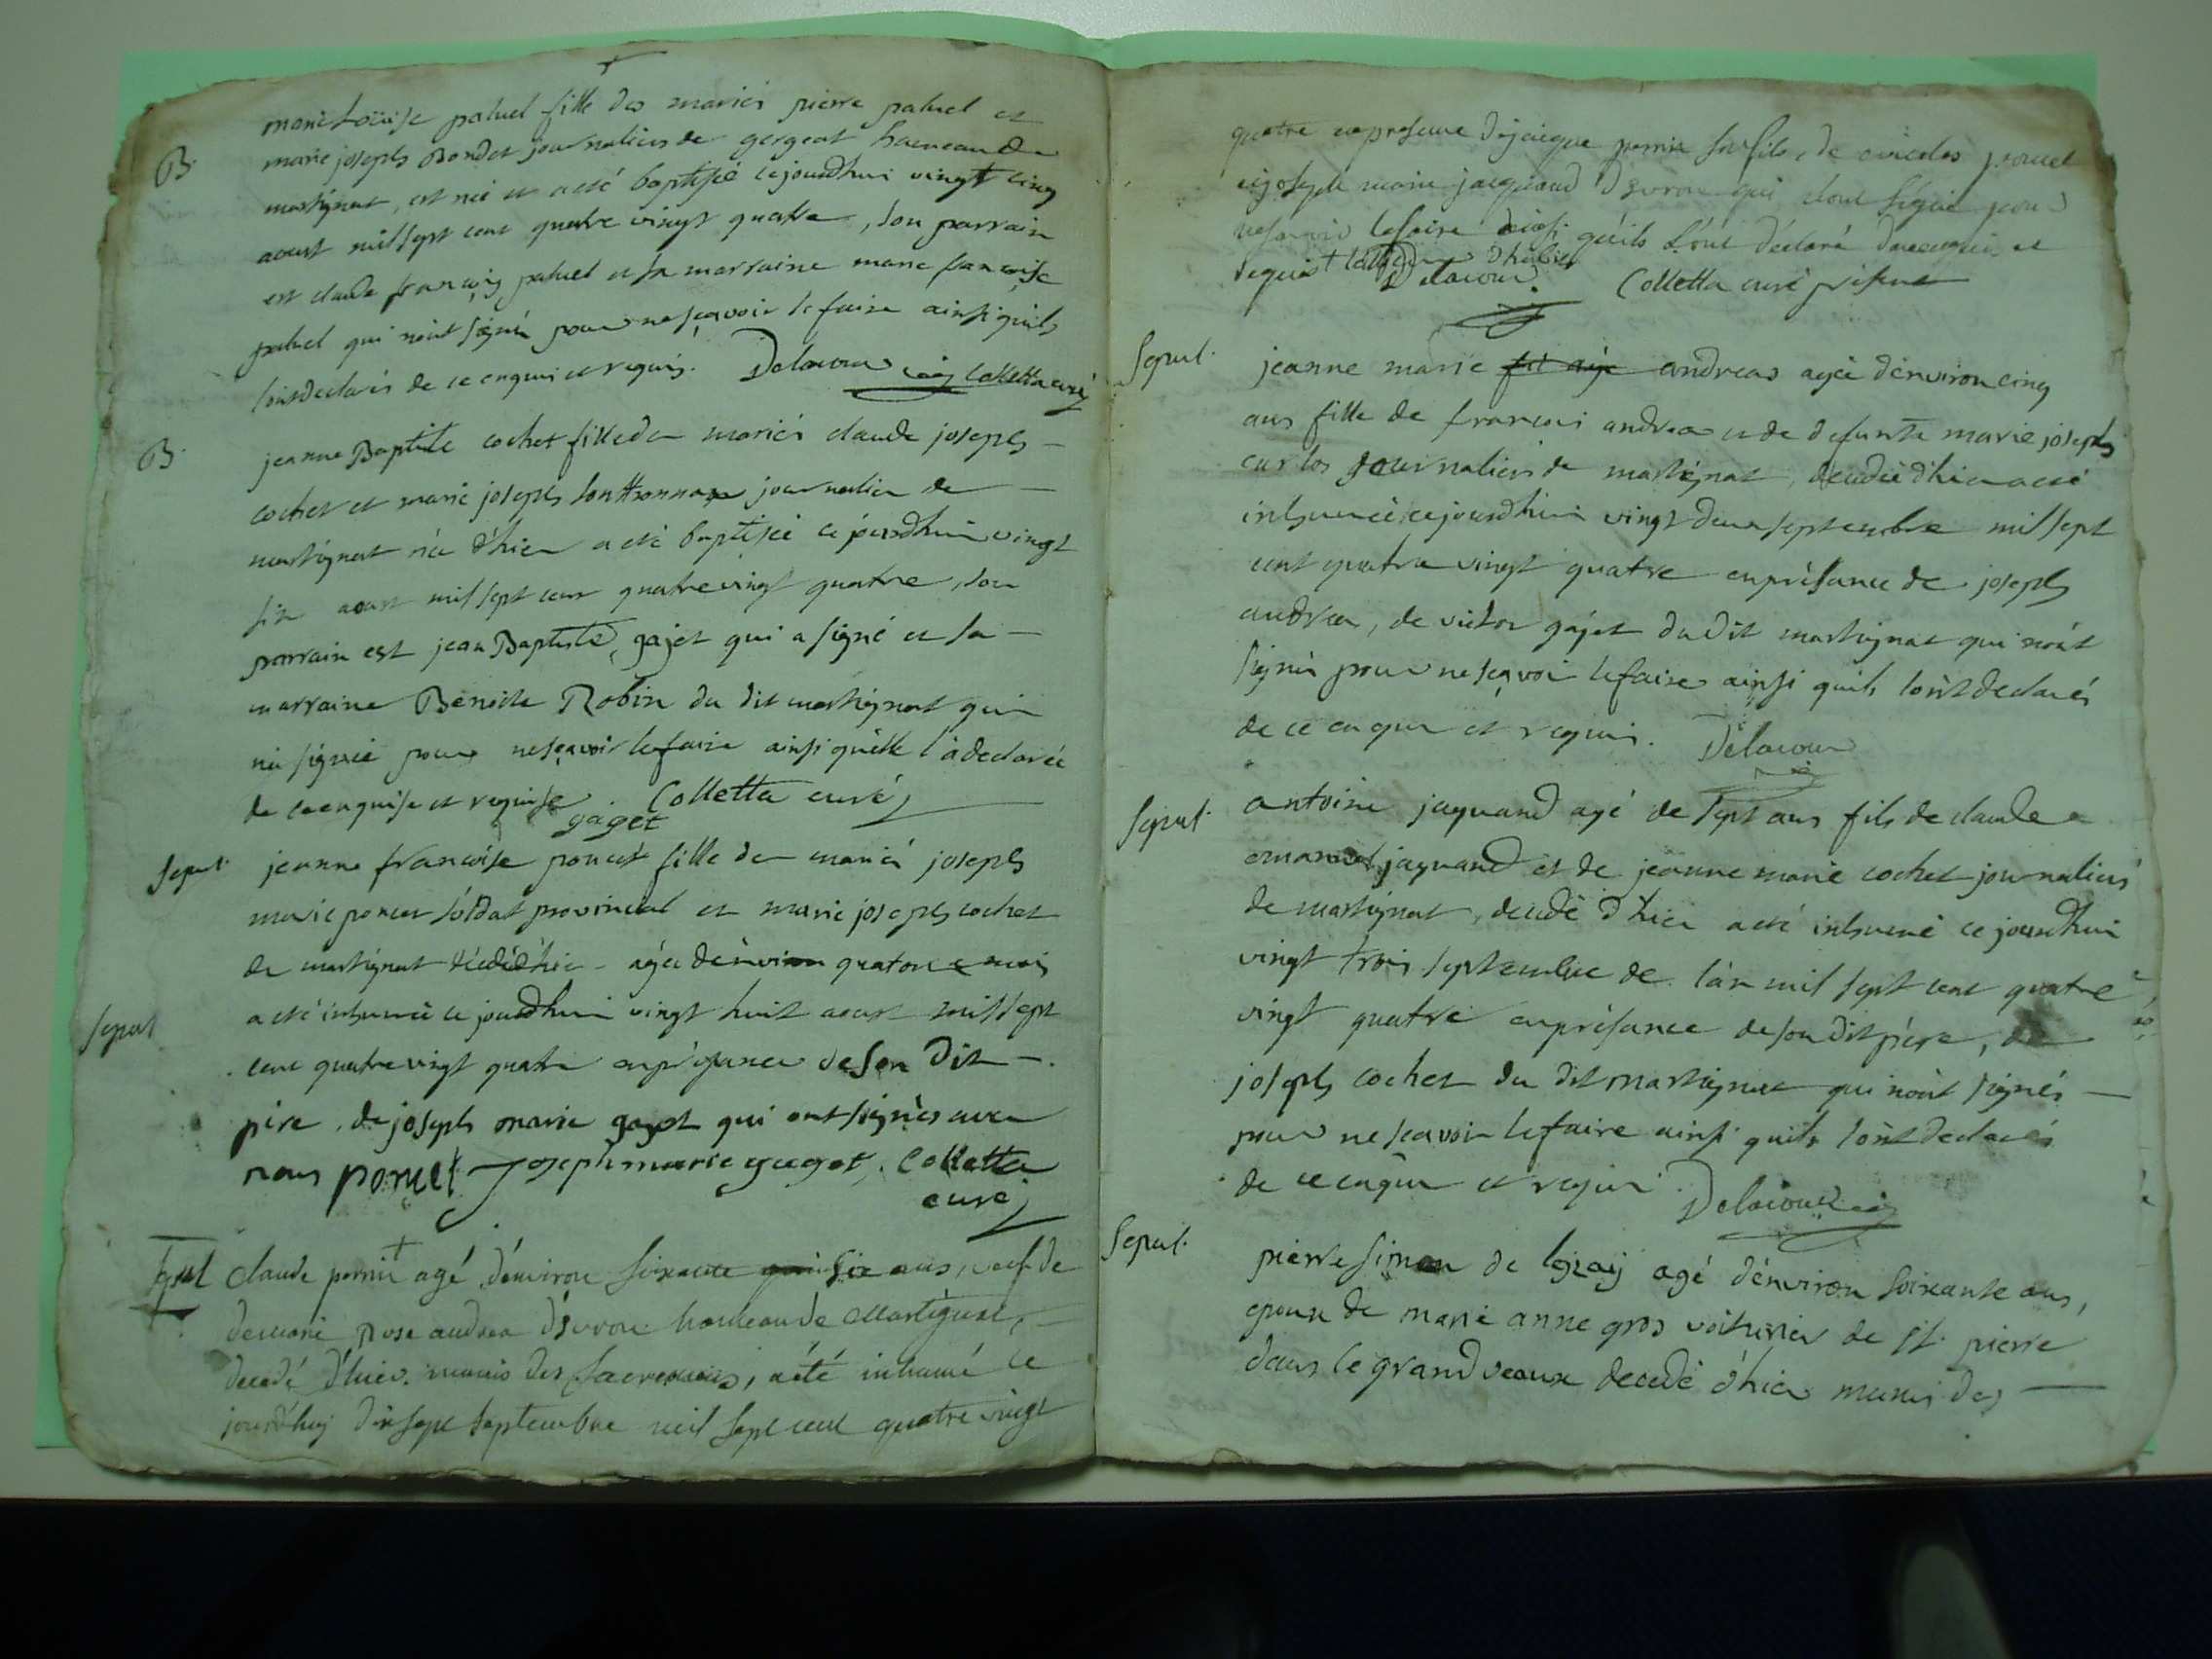 B.
marie Loüise paluel fille des mariés pierre paluel et
marie joseph Bondet journaliers de gergeat hameau de
martignat, est née et a eté baptisée cejourdhui vingt cinq
aoust mil sept cent quatre vingt quatre, son parrain
est claude françois paluel et sa marraine marie françoise
paluel qui n'ont signés pour ne sçavoir le faire ainsi quils
l'ont declarés de ce enquis et requis. Delacour Colletta curé
B.
jeanne Baptiste cochet fille des mariés claude joseph
cochet et marie joseph journalier de
martignat née d'hier a eté baptisée ce jourdhui vingt
six aoust mil sept cent quatre vingt quatre, son
parrain est jean Baptiste gajet qui a signé et sa
marraine Benoite Robin du dit martignat qui
na signée pour ne sçavoir le faire ainsi quelle l'a declarée
de ce enquise et requise. Colletta curé
gaget
Sepul.
jeanne francoise poncet fille des mariés joseph
marie poncet soldat provincial et marie joseph cochet
de martignat décédé d'hier agée d'environ quatorze mois
Sepul
a eté inhumée ce jourdhui vingt huit aoust mil sept
cent quatre vingt quatre en présance de son Dit
père, de joseph marie gaget qui ont signés avec
nous poncet joseph marie gaget, Colletta
curé
Sepul claude pernin agé d'environ soixante six ans, veuf de
de marie rose andrea d'evron hameau de Martignat,
decedé d'hier munis des sacrements, a été inhumé ce
jourd'huy dix sept septembre mil sept cent quatre vingt
quatre en presence de jacque pernin son fils, de nicolas poncet
joseph marie jacquand d'evron qui n'ont signé pour
ne savoir le faire ainsi qu'ils l'ont déclaré de ce enquis et
requis Delacour. Colletta curé présent
Sepul.
jeanne marie andreas agée d'environ cinq
ans fille de francois andrea et de defunte marie joseph
journaliers de martignat, decedée d'hier a eté
inhumée cejourdhui vingt deux septembre mil sept
cent quatre vingt quatre en présance de joseph
andrea, de victor gajet du dit martignat qui n'ont
signés pour ne sçavoir le faire ainsi quils l'ont declarés
de ce enquis et requis. Delacour
Sepul.
antoine jaquand agé de sept ans fils de claude
emanuel jaquand et de jeanne marie cochet journaliers
de martignat, decedé d'hier a eté inhumé ce jourdhui
vingt trois septembre de l'an mil sept cent quatre
vingt quatre en présance de son dit père, de
joseph cochet du dit martignat qui n'ont signés
pour ne sçavoir le faire ainsi quils l'ont declarés
de ce enquis et requis. Delacour
Sepul.
pierre simon de agé d'environ soixante ans,
epoux de marie anne gros voiturier de st. pierre
dans le grandvaux decedé d'hier munis des